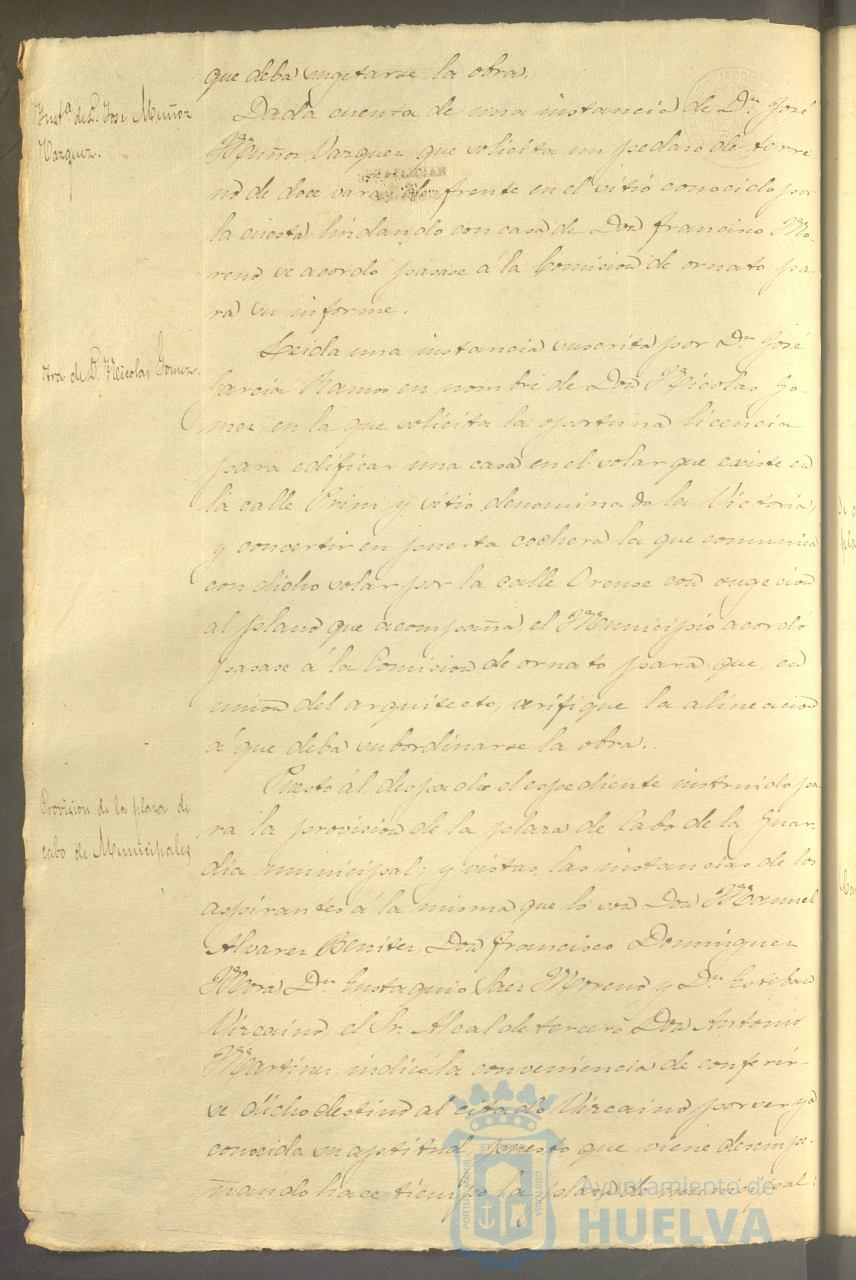 que deba sugetarse la obra.
Inst.ª de D. Jose Muñoz
Vazquez.
Dada cuenta de una instancia de D.n José
Muñoz Vazquez que solicita un pedazo de terre
no de doce varas de frente en el sitio conocido por
la cuesta lindando con casa de Don Francisco Mo-
reno se acordó pasase á la Comision de ornato pa-
ra su informe.
Otra de D. Nicolas Gomez.
Leida una instancia suscrita por D.n José
Garcia Ramos en nombre de Don Nicolas Go-
mez, en la que solicita la oportuna licencia
para edificar una casa en el solar que existe en
la calle Prim y sitio denominado la Victoria,
y convertir en puerta cochera la que comunica
con dicho solar por la calle Orense con sugecion
al plano que acompaña, el Municipio acordó
pasase á la Comision de ornato para que, en
union del arquitecto, verifique la alineacion
á que deba subordinarse la obra.
Provision de la plaza de
cabo de Municipales
Puesto al despacho el espediente instruido pa-
ra la provision de la plaza de Cabo de la Guar-
dia municipal; y vistas las instancias de los
aspirantes á la misma que lo son Don Manuel
Alvarez Benitez, Don Francisco Dominguez
Mora D.n Eustaquio Saez Moreno y D.n Esteban
Vizcaino, el Sr. Alcalde tercero Don Antonio
Martinez, indicó la conveniencia de conferir-
se dicho destino al citado Vizcaino por ser ya
conocida su aptitud, puesto que viene desempe-
ñando hace tiempo la plaza de municipal:
PORTUS MARIS
CUSTODIA
Ayuntamiento de
HUELVA